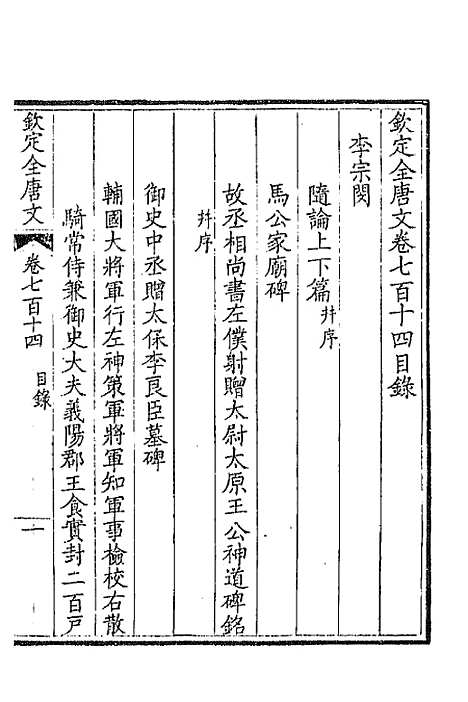 欽定全唐文卷七百十四目錄
李宗閔
隨論上下篇幷序
馬公家廟碑
故丞相尚書左僕射贈太尉太原王公神道碑銘
幷序
御史中丞贈太保李良臣墓碑
輔國大將軍行左神策軍將軍知軍事檢校右散
騎常侍兼御史大夫義陽郡王食實封二百戸
欽定全唐文 卷七百十四 目錄 一